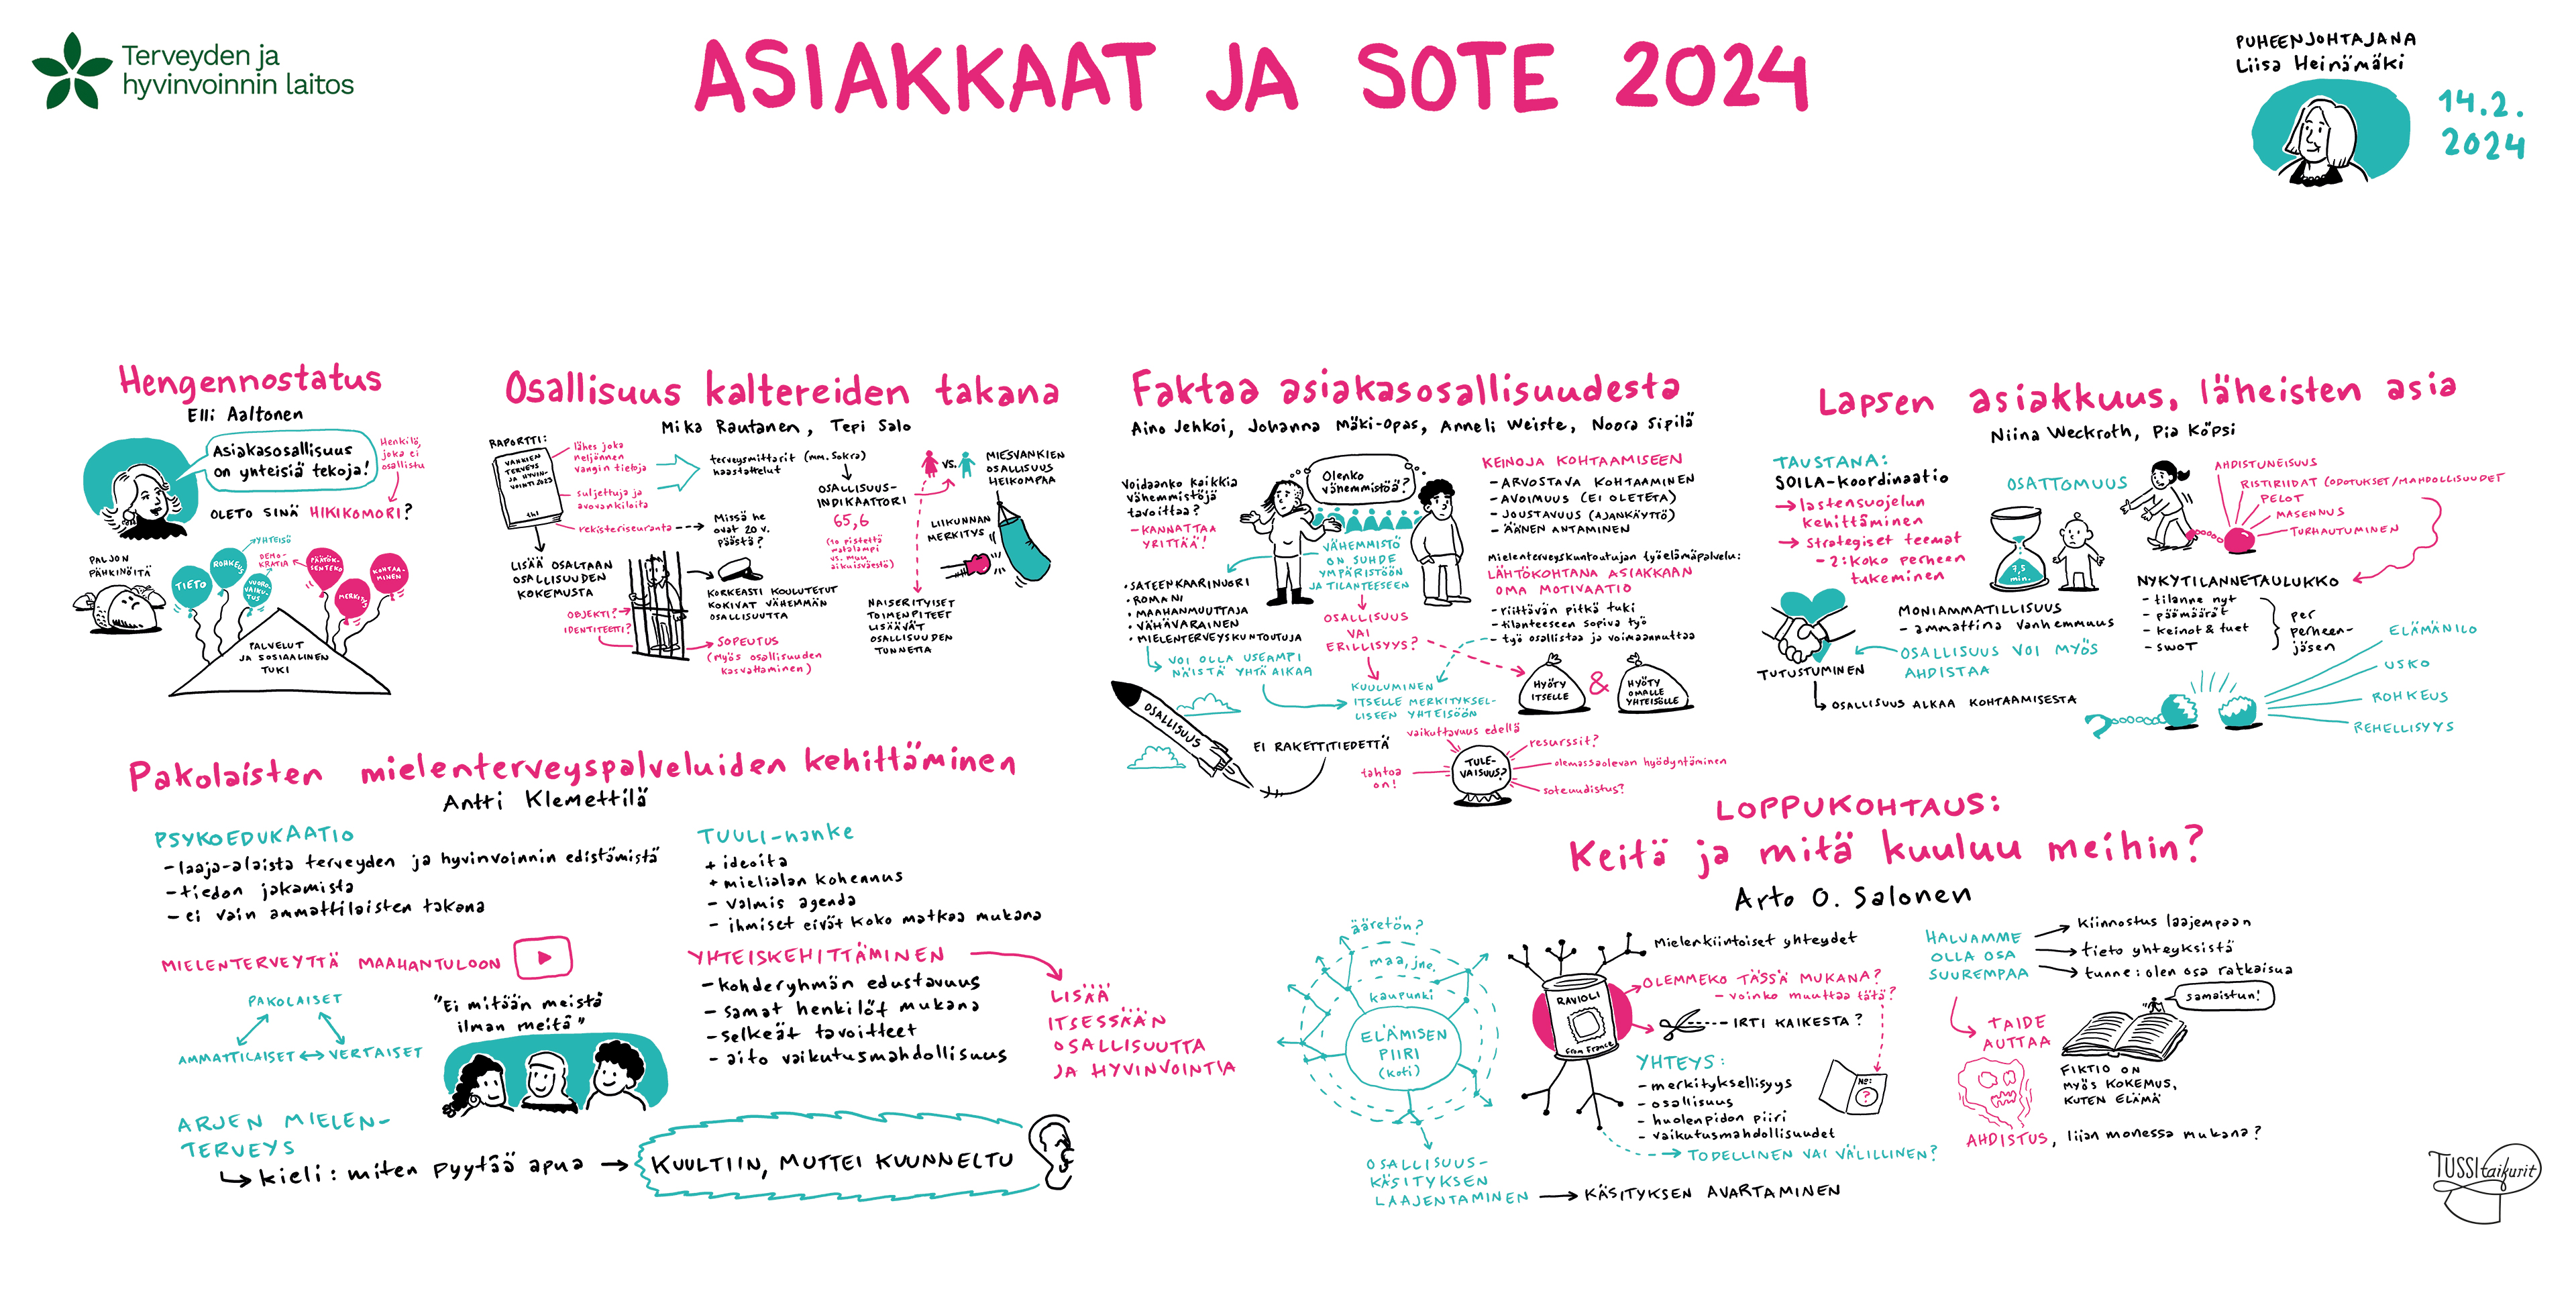 Terveyden ja
hyvinvoinnin laitos
ASIAKKAAT JA SOTE 2024
PUHEENJOHTAJANA
Liisa Heinämäki
14.2.
2024
Hengennostatus
Elli Aaltonen
Asiakasosallisuus
on yhteisiä tekoja!
Henkilö,
joka ei
osallistu
OLETO SINÄ HIKIKOMORI?
PALJON
PÄHKINÖITÄ
TIETO
ROHKEUS
YHTEISÖ
VUORO-
VAIKU-
TUS
DEMO-
KRATIA
PÄÄTÖK-
SENTEKO
MERKITYS
KOHTAA-
MINEN
PALVELUT
JA SOSIAALINEN
TUKI
Osallisuus kaltereiden takana
Mika Rautanen, Tepi Salo
RAPORTTI:
VANKIEN
TERVEYS
JA HYVIN-
VOINTI 2023
thl
lähes joka
neljännen
vangin tietoja
suljettuja ja
avovankiloita
rekisteriseuranta
Missä he
ovat 20 v.
päästä?
terveysmittarit (mm. Sokra)
haastattelut
OSALLISUUS-
INDIKAATTORI
65,6
(10 pistettä
matalampi
vs. muu
aikuisväestö)
VS.
MIESVANKIEN
OSALLISUUS
HEIKOMPAA
LIIKUNNAN
MERKITYS
LISÄÄ OSALTAAN
OSALLISUUDEN
KOKEMUSTA
OBJEKTI?
IDENTITEETTI?
KORKEASTI KOULUTETUT
KOKIVAT VÄHEMMÄN
OSALLISUUTTA
SOPEUTUS
(myös osallisuuden
kasvattaminen)
NAISERITYISET
TOIMENPITEET
LISÄÄVÄT
OSALLISUUDEN
TUNNETTA
Faktaa asiakasosallisuudesta
Aino Jehkoi, Johanna Mäki-Opas, Anneli Weiste, Noora Sipilä
Voidaanko kaikkia
vähemmistöjä
tavoittaa?
- KANNATTAA
YRITTÄÄ!
Olenko
vähemmistöä?
VÄHEMMISTÖ
ON SUHDE
YMPÄRISTÖÖN
JA TILANTEESEEN
• SATEENKAARINUORI
• ROMANI
• MAAHANMUUTTAJA
• VÄHÄVARAINEN
• MIELENTERVEYSKUNTOUTUJA
VOI OLLA USEAMPI
NÄISTÄ YHTÄ AIKAA
OSALLISUUS
VAI
ERILLISYYS?
KUULUMINEN
ITSELLE MERKITYKSEL-
LISEEN YHTEISÖÖN
KEINOJA KOHTAAMISEEN
- ARVOSTAVA KOHTAAMINEN
- AVOIMUUS (EI OLETETA)
- JOUSTAVUUS (AJANKÄYTTÖ)
- ÄÄNEN ANTAMINEN
Mielenterveyskuntoutujan työelämäpalvelu:
LÄHTÖKOHTANA ASIAKKAAN
OMA MOTIVAATIO
- riittävän pitkä tuki
- tilanteeseen sopiva työ
- työ osallistaa ja voimaannuttaa
HYÖTY
ITSELLE
&
HYÖTY
OMALLE
YHTEISÖLLE
OSALLISUUS
EI RAKETTITIEDETTÄ
TULE-
VAISUUS?
vaikuttavuus edellä
resurssit?
olemassaolevan hyödyntäminen
soteuudistus?
tahtoa
on!
Lapsen asiakkuus, läheisten asia
Niina Weckroth, Pia Köpsi
TAUSTANA:
SOILA-koordinaatio
lastensuojelun
kehittäminen
strategiset teemat
- 2: Koko perheen
tukeminen
OSATTOMUUS
7,5
min.
AHDISTUNEISUUS
RISTIRIIDAT (ODOTUKSET/MAHDOLLISUUDET
PELOT
MASENNUS
TURHAUTUMINEN
NYKYTILANNETAULUKKO
- tilanne nyt
- päämäärät
- keinot & tuet
- SWOT
per
perheen-
jäsen
MONIAMMATILLISUUS
- ammattina vanhemmuus
OSALLISUUS VOI MYÖS
AHDISTAA
TUTUSTUMINEN
OSALLISUUS ALKAA KOHTAAMISESTA
ELÄMÄNILO
USKO
ROHKEUS
REHELLISYYS
Pakolaisten mielenterveyspalveluiden kehittäminen
Antti Klemettilä
PSYKOEDUKAATIO
- laaja-alaista terveyden ja hyvinvoinnin edistämistä
- tiedon jakamista
- ei vain ammattilaisten takana
MIELENTERVEYTTÄ MAAHANTULOON
PAKOLAISET
AMMATTILAISET
VERTAISET
"Ei mitään meistä
ilman meitä"
ARJEN MIELEN-
TERVEYS
kieli: miten pyytää apua
KUULTIIN, MUTTEI KUUNNELTU
TUULI-hanke
+ ideoita
+ mielialan kohennus
- valmis agenda
- ihmiset eivät koko matkaa mukana
YHTEISKEHITTÄMINEN
- kohderyhmän edustavuus
- samat henkilöt mukana
- selkeät tavoitteet
- aito vaikutusmahdollisuus
LISÄÄ
ITSESSÄÄN
OSALLISUUTTA
JA HYVINVOINTIA
LOPPUKOHTAUS:
Keitä ja mitä kuuluu meihin?
Arto O. Salonen
ääretön?
maa, jne.
kaupunki
ELÄMISEN
PIIRI
(koti)
OSALLISUUS-
KÄSITYKSEN
LAAJENTAMINEN
KÄSITYKSEN AVARTAMINEN
Mielenkiintoiset yhteydet
RAVIOLI
from France
OLEMMEKO TÄSSÄ MUKANA?
- voinko muuttaa tätä?
IRTI KAIKESTA?
YHTEYS:
- merkityksellisyys
- osallisuus
- huolenpidon piiri
- vaikutusmahdollisuudet
TODELLINEN VAI VÄLILLINEN?
No:
?
HALUAMME
OLLA OSA
SUUREMPAA
Kiinnostus laajempaan
tieto yhteyksistä
tunne: olen osa ratkaisua
TAIDE
AUTTAA
samaistun!
FIKTIO ON
MYÖS KOKEMUS,
KUTEN ELÄMÄ
AHDISTUS, liian monessa mukana?
TUSSItaikurit